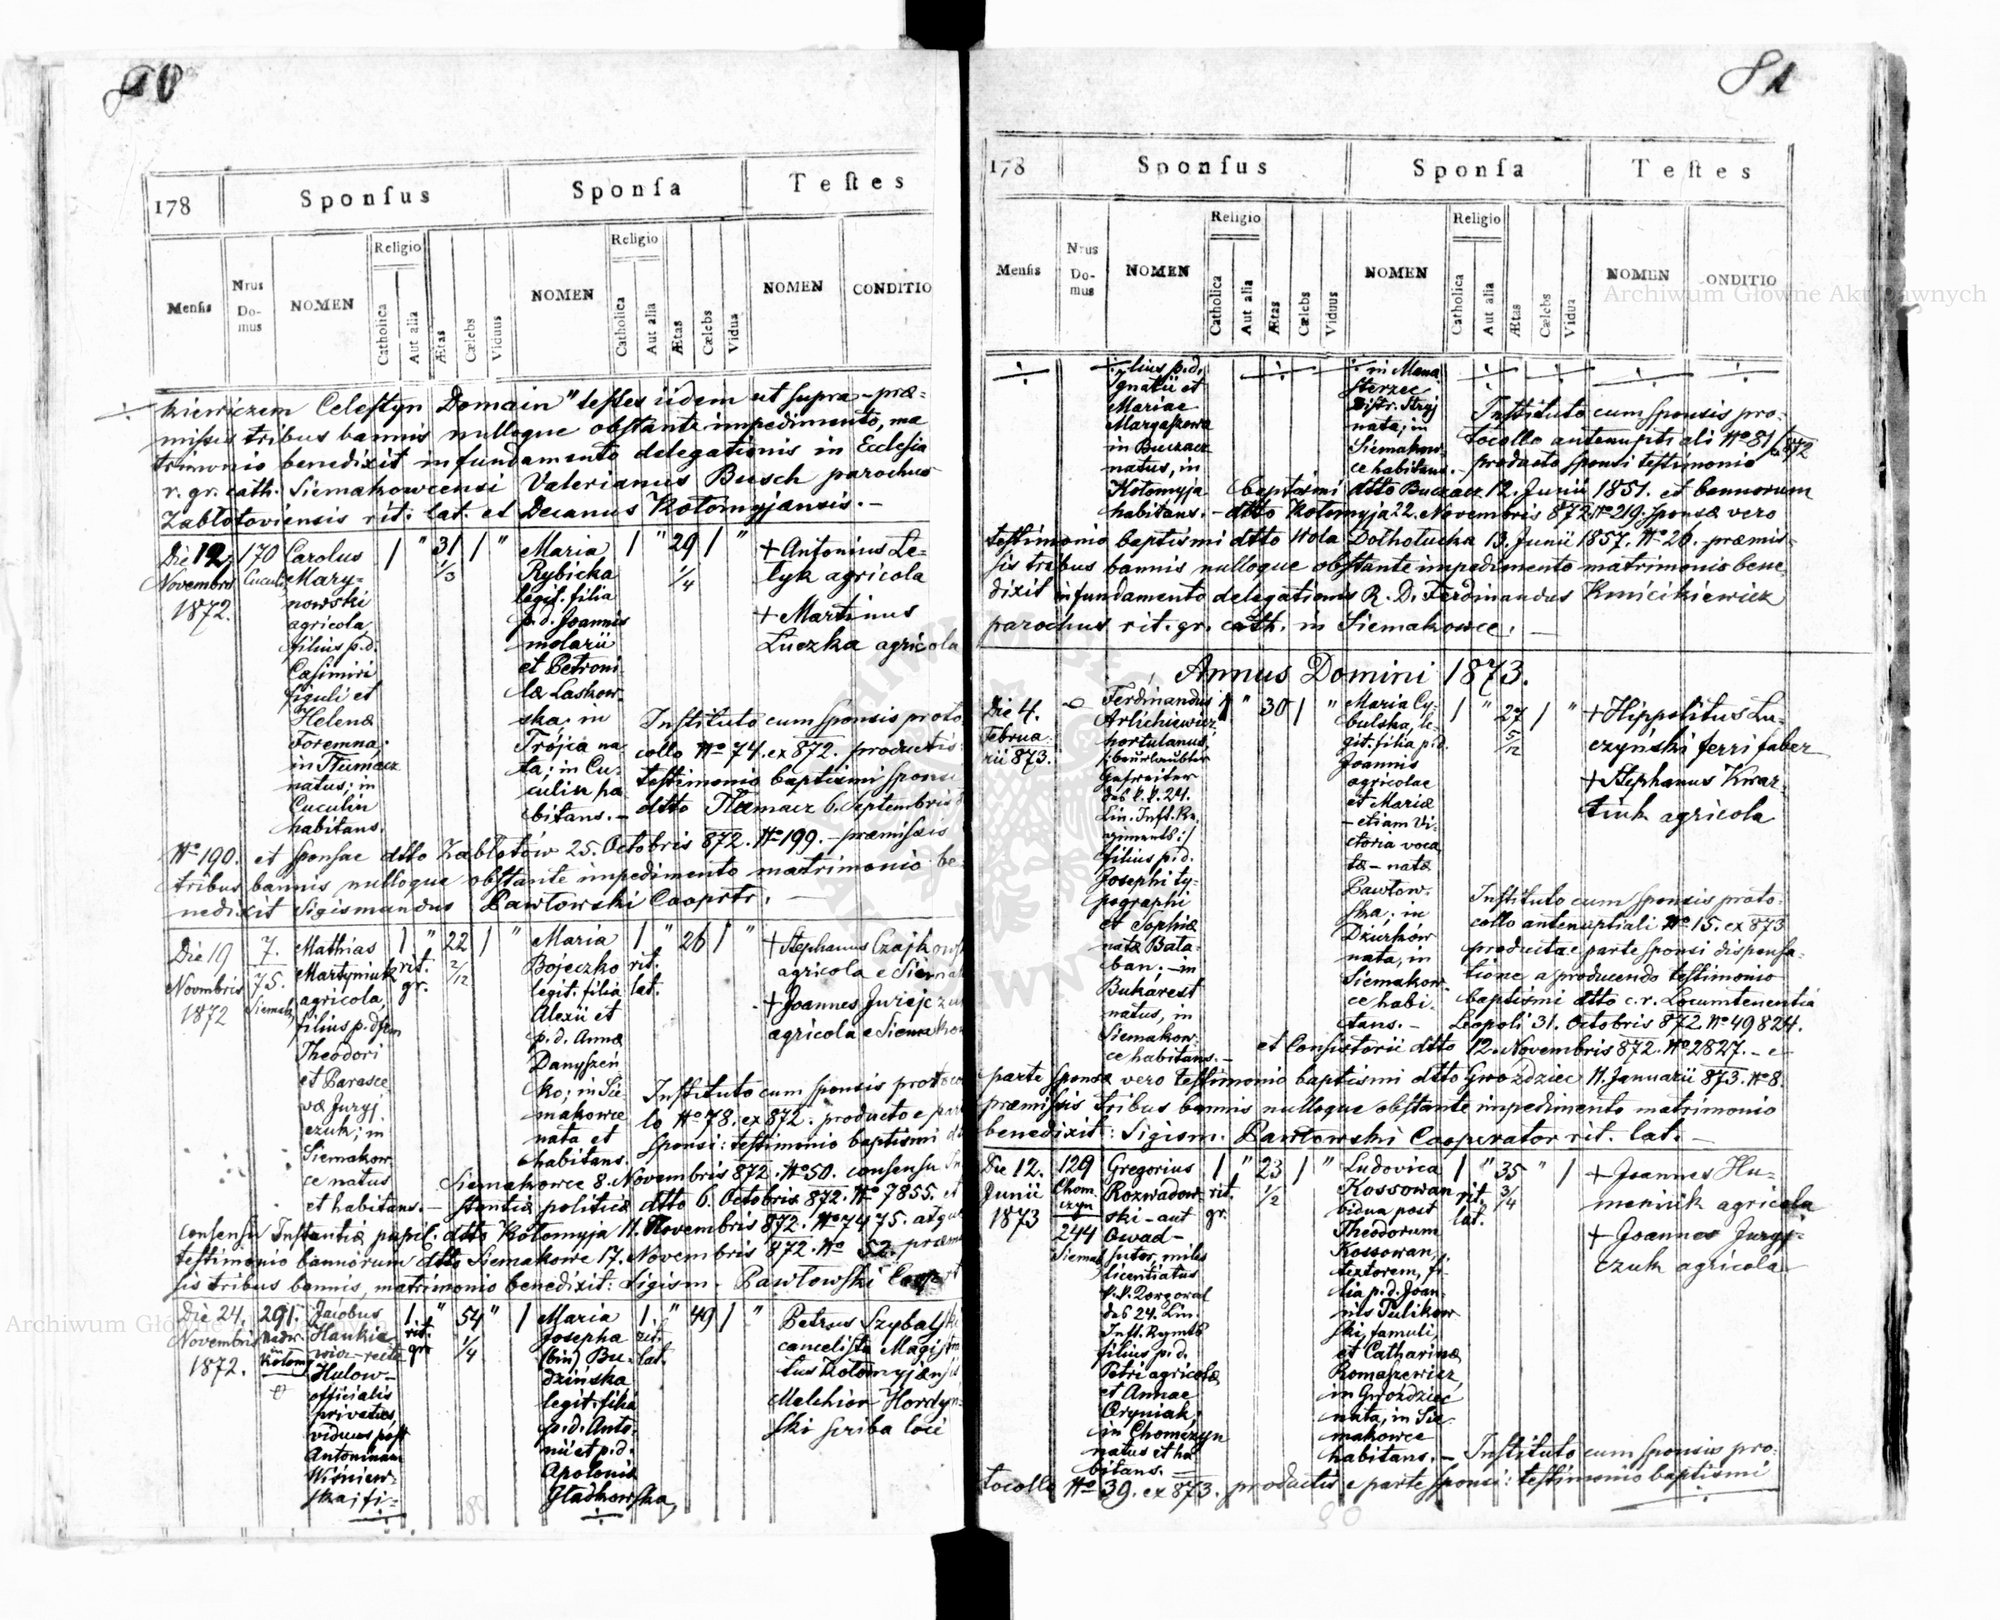 80
178
Sponſus
Sponſa
Teſtes
Menſis
Nrus Do-mus
NOMEN
Religio
Catholica
Aut alia
Ætas
Cælebs
Viduus
NOMEN
Religio
Catholica
Aut alia
Ætas
Cælebs
Vidua
NOMEN
CONDITIO
kiewiczem Celeſtyn Domain" teſtes iidem ut ſupra – præ=
miſsis tribus bannis nulloque obſtante impedimento, ma
trimonio benedixit in fundamento delegationis in Eccleſia
r. gr. cath. Siemakowcensi Valerianus Busch parochus
Zabłotoviensis rit. lat. et Decanus Kołomyjansis. –
Die 12.
Novembris
1872.
170
Cuculi
Carolus
Mary-
nowski
agricola
filius p.d.
Casimiri
figuli et
Helenæ
Foremna;
in Tłumacz
natus; in
Cuculin
habitans.
1 " 31 1 "
1/3
Maria
Rybicka
legit. filia
p.d. Joannis
molarii
et Petroni
læ Laskow-
ska; in
Trójca na
ta; in Cu-
culin ha
bitans. –
1 " 29 1 "
1/4
+ Antonius Le-
lyk agricola
+ Martinus
Łuczka agricola
Inſtituto cum ſponsis proto
collo No 74. ex 872. productis
teſtimonio baptismi ſponsi
ddto Tłumacz 6. Septembris
No 190. et ſponsae ddto Zabłotów 25. Octobris 872. No 199. – præmiſsis
tribus bannis nulloque obſtante impedimento matrimonio be-
nedixit Sigismundus Pawłowski Cooprtr. –
Die 19
Novmbris
1872
7.
75.
Siemak
Mathias
Martyniuk
agricola,
filius p. dfm
Theodori
et Parasce
væ Juryj
czuk; in
Siemakow
ce natus
et habitans. –
1 " 22 1 "
rit. gr.
2/12
Maria
Bojeczko
legit. filia
Alexii et
p.d. Annæ
Danyszeń
ko; in Sie
makowce
nata et
habitans.
1 " 26 1 "
rit.
lat.
+ Stephanus Czajkowsk
agricola e Siemak
+ Joannes Juriejczuk
agricola e Siemakow
Inſtituto cum ſponsis protoco
lo No 78. ex 872. producto e part
ſponsi: teſtimonio baptismi
Siemakowce 8. Novembris 872. No 50. consensu In
ſtantiæ politicæ ddto 6. Octobris 872. No 7855. et
consensu Inſtantiæ pupil. ddto Kołomyja 11. Novembris 872. No 7475. atque
teſtimonio bannorum ddto Siemakowce 17. Novembris 872. No 52. præmi
ſis tribus bannis, matrimonio benedixit: Sigism. Pawłowſki
Die 24.
Novembris
1872.
291.
Nadw.
in
Kołom
et
Jacobus
Hankie
wicz – recte
Hulow –
officialis
privatus,
viduus poſt
Antoninam
Wiśniew-
ska; fi-
1. " 54 " 1
rit.
gr.
1/4
Maria
Josepha
(bin) Bu-
dzińska
legit. filia
p.d. Anto-
nii et p.d.
Apoloniæ
Gładkowska,
1. " 49 1 "
rit.
lat.
Petrus Szybalſki
cancelista Magiſtra
tus Kołomyjensis
Melchior Hordyn-
ſki ſcriba loci
81
178
Sponſus
Sponſa
Teſtes
Menſis
Nrus Do-mus
NOMEN
Religio
Catholica
Aut alia
Ætas
Cælebs
Viduus
NOMEN
Religio
Catholica
Aut alia
Ætas
Cælebs
Vidua
NOMEN
ONDITIO
lius p.d.
Ignatii et
Mariae
Margaszewa
in Buczacz
natus, in
Kołomyja
habitans. –
in Mana
sterzec
Diſtr. Stryj
nata; in
Siemakow-
ce habitans. –
Inſtituto cum ſponsis pro-
tocollo antenuptiali No 81/872
producto ſponsi teſtimonio
baptismi ddto Buczacz 12. Junii 1851. et bannorum
ddto Kołomyja 22. Novembris 872. No 219. ſponsæ vero
teſtimonio baptismi ddto Wola Dołhołucka 13. Junii 1857. No 26. præmis-
sis tribus bannis nulloque obſtante impedimento matrimonio bene-
dixit in fundamento delegationis R. D. Ferdinandus Kmicikiewicz
parochus rit. gr. cath. in Siemakowce. –
Annus Domini 1873.
Die 4.
Februa-
rii 873.
Ferdinandus
Arlichiewicz
hortulanus,
/: beurlaubter
Gefreiter
des k. k. 24.
Lin. Inft. Re.
giments :/
filius p.d.
Josephi ty-
pographi
et Sophiæ
natæ Bata-
ban; – in
Bukarest
natus, in
Siemakow-
ce habitans. –
1 " 30 1 "
Maria Cy-
bulska, le-
git. filia p.d.
Joannis
agricolae
et Mariæ
– etiam Vi-
ctoria voca
tæ – natæ
Pawłow-
ska; in
Dżurków
nata, in
Siemakow
ce habi-
tans. –
1 " 27 1 "
5/12
+ Hippolitus Łu-
czyński ferri faber
+ Stephanus Kwar-
tiuk agricola
Inſtituto cum ſponsis proto-
collo antenuptiali No 15. ex 873
producta e parte ſponsi dispensa-
tione a producendo teſtimonio
baptismi ddto c.r. Locumtenentia
Leopoli 31. Octobris 872. No 49824.
et Consistorii ddto 12. Novembris 872. No 2827. – e
parte ſponsæ vero teſtimonio baptismi ddto Gwoździec 11. Januarii 873. No 8.
præmiſsis tribus bannis nulloque obſtante impedimento matrimonio
benedixit: Sigism. Pawłowski Cooperator rit. lat. –
Die 12.
Junii
1873
129
Chom-
czyn
244
Siemak
Gregorius
Rozwadow-
ski – aut
Owad –
ſutor, miles
licentiatus
k.k. Corporal
des 24. Lin.
Inft. Rgmts
filius p.d.
Petri agricolæ
et Annae
Oryniak;
in Chomczyn
natus et ha
bitans. –
1 " 23 1 "
rit.
gr.
1/2
Ludovica
Kossowan
vidua post
Theodorum
Kossowan,
textorem, fi-
lia p.d. Joan-
nis Tulikow-
ski, famuli,
et Catharinæ
Romaszewicz,
in Gwoździec
nata, in Sie-
makowce
habitans. –
1 " 35 " 1
rit.
lat.
3/4
+ Joannes Hu-
meniuk agricola
+ Joannes Juryj-
czuk agricola
Inſtituto cum ſponsis pro-
tocollo No 39. ex 873. productis e parte ſponsi: teſtimonio baptismi
Archiwum Główne Akt Dawnych
Archiwum Główne Akt Dawnych